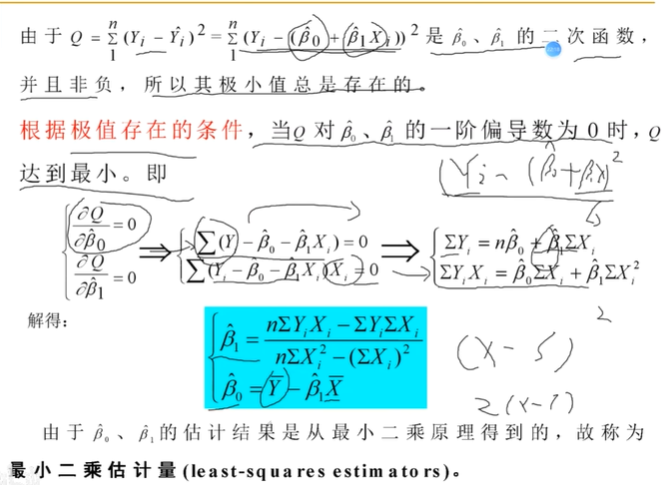 由于 Q = Σ₁ⁿ (Y_i - Ŷ_i)² = Σ₁ⁿ (Y_i - (β̂₀ + β̂₁X_i))² 是 β̂₀、β̂₁ 的二次函数，
并且非负，所以其极小值总是存在的。
根据极值存在的条件，当Q 对 β̂₀、β̂₁ 的一阶偏导数为 0 时，Q
达到最小。即
(Yi - (β̂₀+β̂₁X)²
{ ∂Q/∂β̂₀ = 0 ⟹ { Σ(Y_i - β̂₀ - β̂₁X_i) = 0 ⟹ { ΣY_i = nβ̂₀ + β̂₁ΣX_i
∂Q/∂β̂₁ = 0 Σ(Y_i - β̂₀ - β̂₁X_i)X_i = 0 ΣY_iX_i = β̂₀ΣX_i + β̂₁ΣX_i²
解得：
{ β̂₁ = (nΣY_iX_i - ΣY_iΣX_i)/(nΣX_i² - (ΣX_i)²)
β̂₀ = Ȳ - β̂₁X̄
(x-5)²
2(x-
由于 β̂₀、β̂₁的估计结果是从最小二乘原理得到的，故称为
最小二乘估计量(least-squares estimators)。